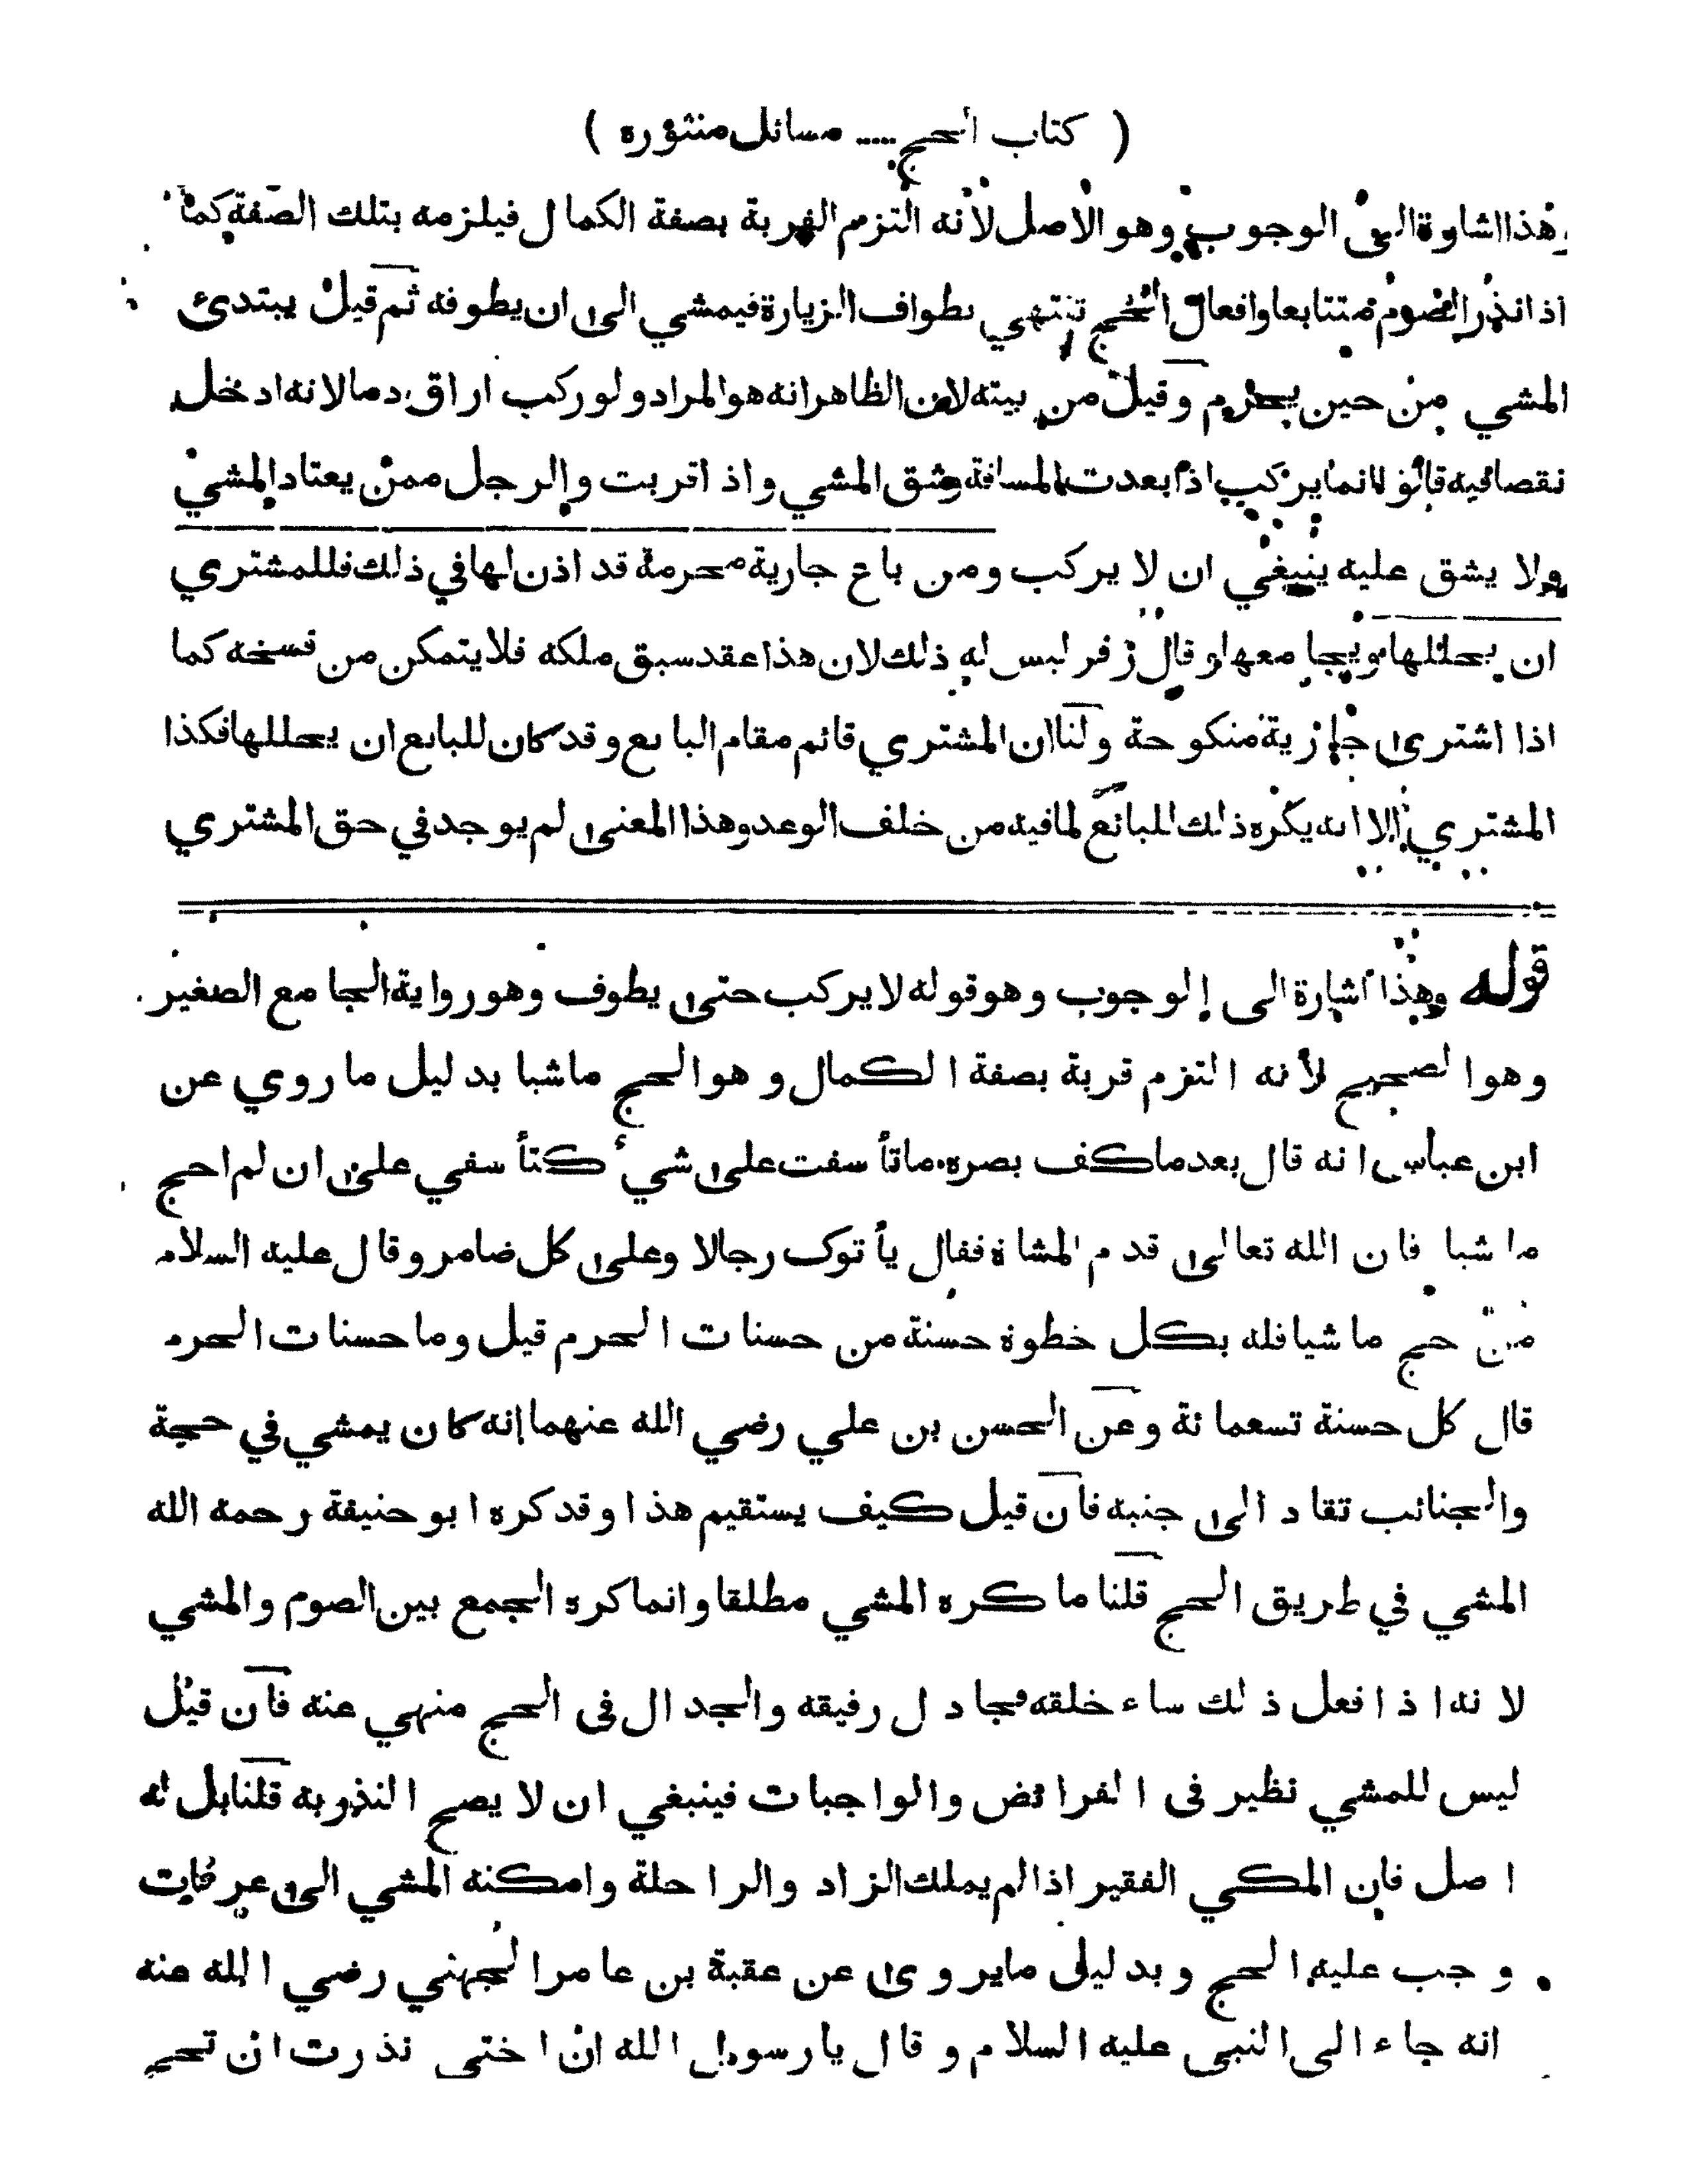 ( كتاب الحج ..... مسائل منثوره )
وهذا اشارة الى الوجوب وهو الاصل لأنه التزم القربة بصفة الكمال فيلزمه بتلك الصفة كما
اذا نذر الصوم متتابعا وافعال الحج تنتهي بطواف الزيارة فيمشي الى ان يطوفه ثم قيل يبتدئ
المشي من حين يحرم وقيل من بيته لان الظاهر انه هو المراد ولو ركب اراق دما لانه ادخل
نقصا فيه قالو انما يركب اذا بعدت المسافة وشق المشي واذ اقربت والرجل ممن يعتاد المشي
ولا يشق عليه ينبغي ان لا يركب ومن باع جارية محرمة قد اذن لها في ذلك فللمشتري
ان يحللها ويجامعها وقال زفر ليس له ذلك لان هذا عقد سبق ملكه فلا يتمكن من فسخه كما
اذا اشترى جارية منكوحة ولنا ان المشتري قائم مقام البايع وقد كان للبايع ان يحللها فكذا
المشتري الا انه يكره ذلك للبائع لما فيه من خلف الوعد وهذا المعنى لم يوجد في حق المشتري
قوله وهذا اشارة الى الوجوب وهو قوله لا يركب حتى يطوف وهو رواية الجامع الصغير
وهو الصحيح لأنه التزم قربة بصفة الكمال وهو الحج ماشيا بدليل ما روي عن
ابن عباس انه قال بعد ما كف بصره ما تأسفت على شيء كتأسفي على ان لم احج
ماشيا فان الله تعالى قدم المشاة فقال يأتوك رجالا وعلى كل ضامر وقال عليه السلام
من حج ماشيا فله بكل خطوة حسنة من حسنات الحرم قيل وما حسنات الحرم
قال كل حسنة تسعمائة وعن الحسن بن علي رضي الله عنهما إنه كان يمشي في حجة
والجنائب تقاد الى جنبه فان قيل كيف يستقيم هذا وقد كره ابو حنيفة رحمه الله
المشي في طريق الحج قلنا ما كره المشي مطلقا وانما كره الجمع بين الصوم والمشي
لانه اذا فعل ذلك ساء خلقه فجادل رفيقه والجدال فى الحج منهي عنه فان قيل
ليس للمشي نظير فى الفرائض والواجبات فينبغي ان لا يصح النذر به قلنا بل له
اصل فان المكي الفقير اذا لم يملك الزاد والراحلة وامكنه المشي الى عرفات
وجب عليه الحج وبدليل ما يروى عن عقبة بن عامر الجهني رضي الله عنه
انه جاء الى النبى عليه السلام وقال يا رسول الله ان اختى نذرت ان تحج